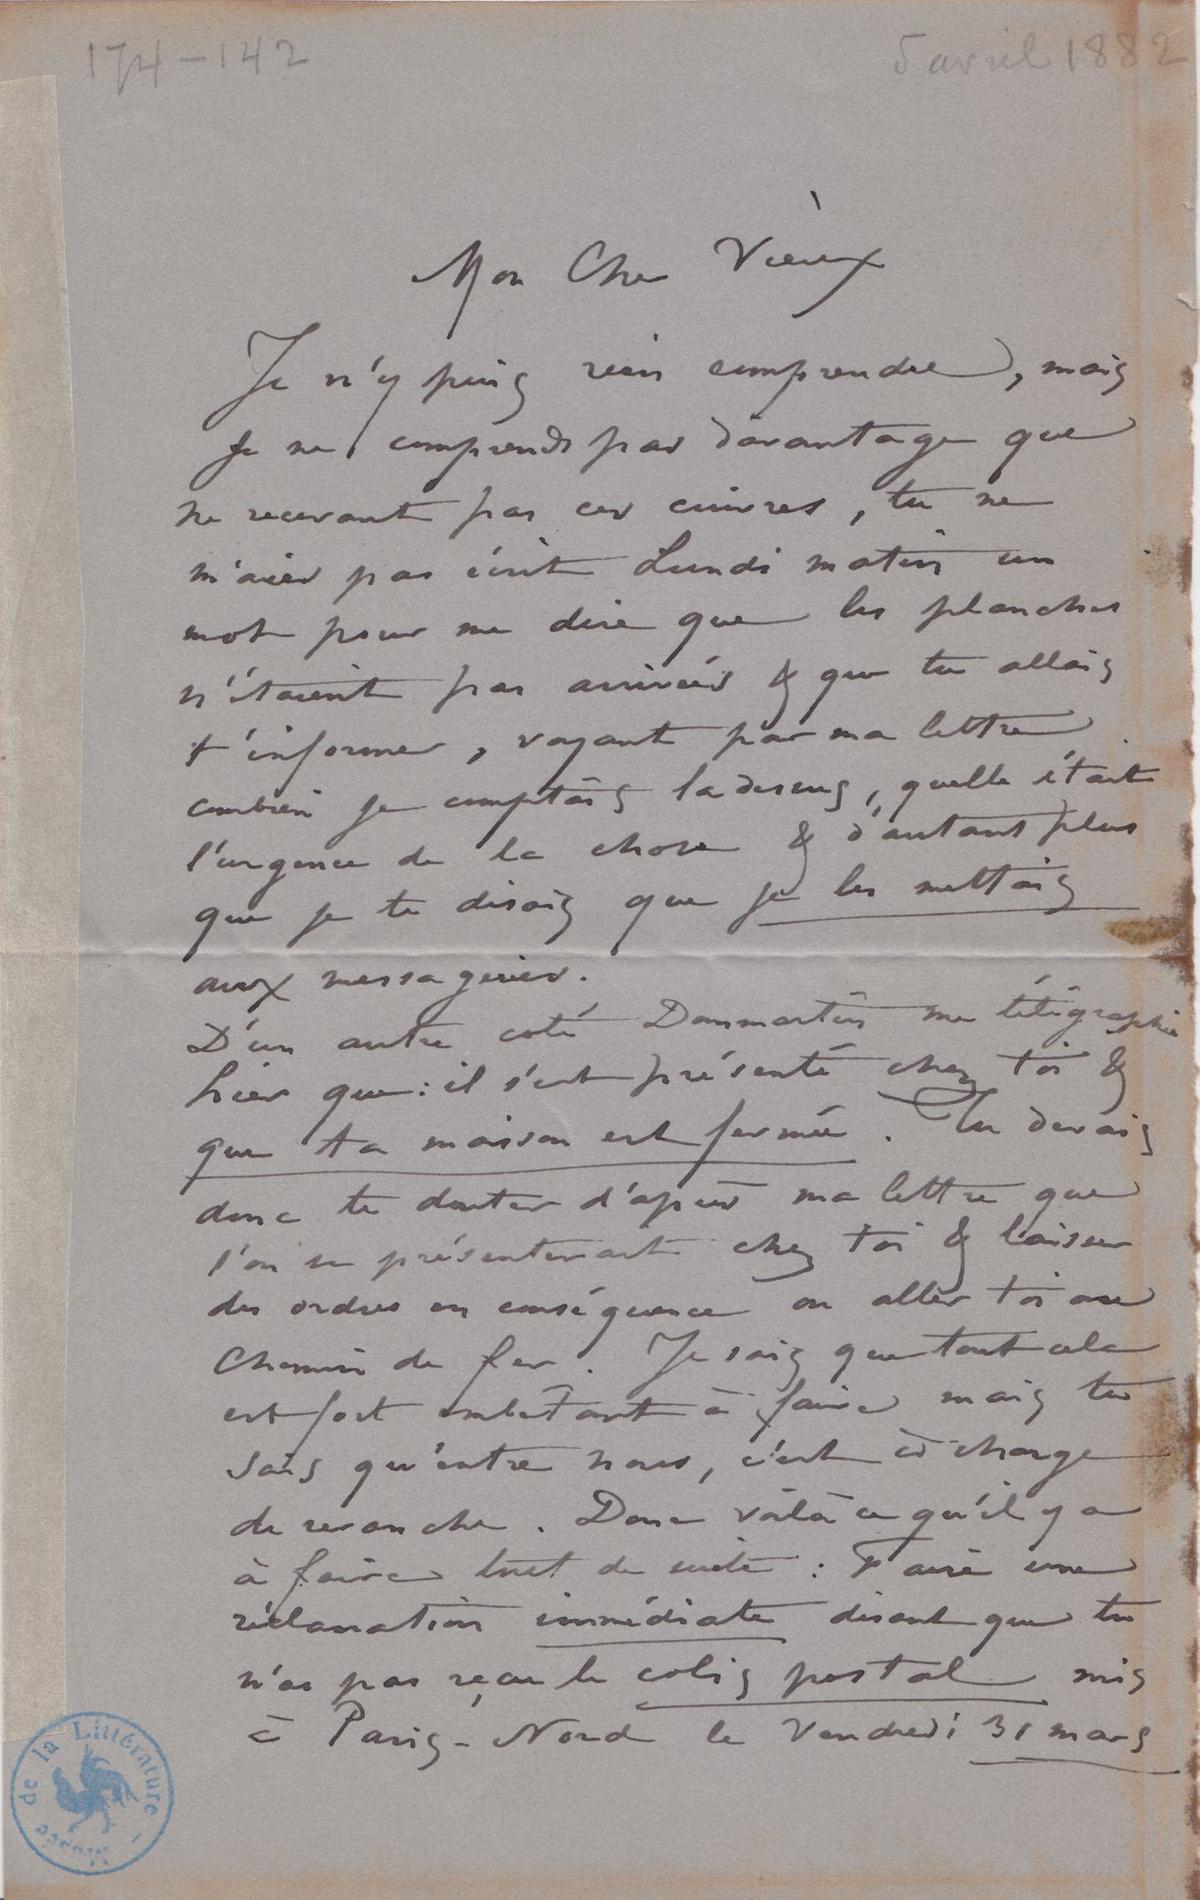 174-142
5 avril 1882
Mon Cher Vieux
Je n'y puis rien comprendre, mais
je ne comprends pas davantage que
ne recevant pas ces cuivres, tu ne
m'aies pas écrit Lundi matin un
mot pour me dire que les planches
n'étaient pas arrivées & que tu allais
t'informer, voyant par ma lettre
combien je comptais la dessus, quelle était
l'urgence de la chose & d'autant plus
que je te disais que je les mettais
aux messageries.
D'un autre coté Dommartin me télégraphie
hier que : il s'est présenté chez toi &
que ta maison est fermée. Tu devais
donc te douter d'après ma lettre que
l'on se présenterait chez toi & laisser
des ordres en conséquence ou aller toi au
Chemin de fer. Je sais que tout cela
est fort embêtant à faire mais tu
sais qu'entre nous, c'est à charge
de revanche. Donc voilà ce qu'il y a
à faire tout de suite : Faire une
réclamation immédiate disant que tu
n'as pas reçu le colis postal mis
à Paris-Nord le Vendredi 31 mars
de la Littérature - Musée